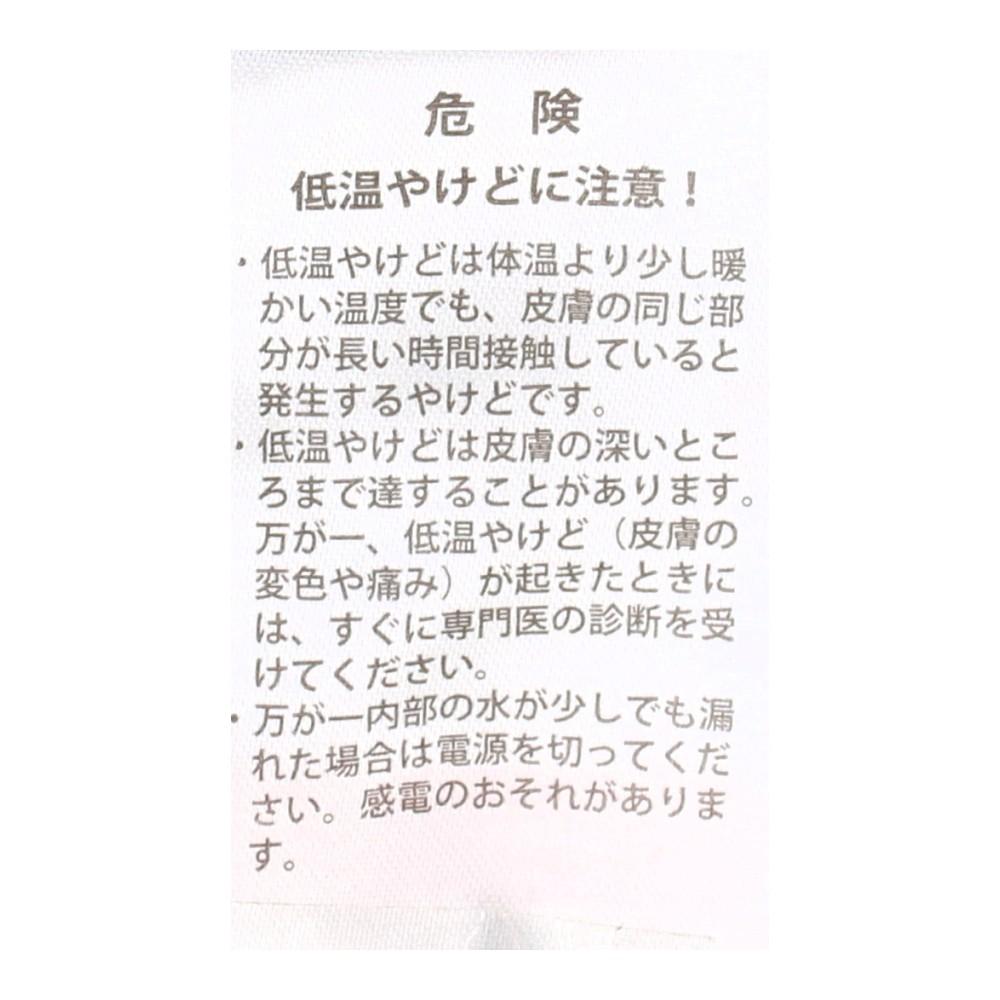 危　険
低温やけどに注意！
・低温やけどは体温より少し暖
かい温度でも、皮膚の同じ部
分が長い時間接触していると
発生するやけどです。
・低温やけどは皮膚の深いとこ
ろまで達することがあります。
万が一、低温やけど（皮膚の
変色や痛み）が起きたときに
は、すぐに専門医の診断を受
けてください。
・万が一内部の水が少しでも漏
れた場合は電源を切ってくだ
さい。感電のおそれがありま
す。